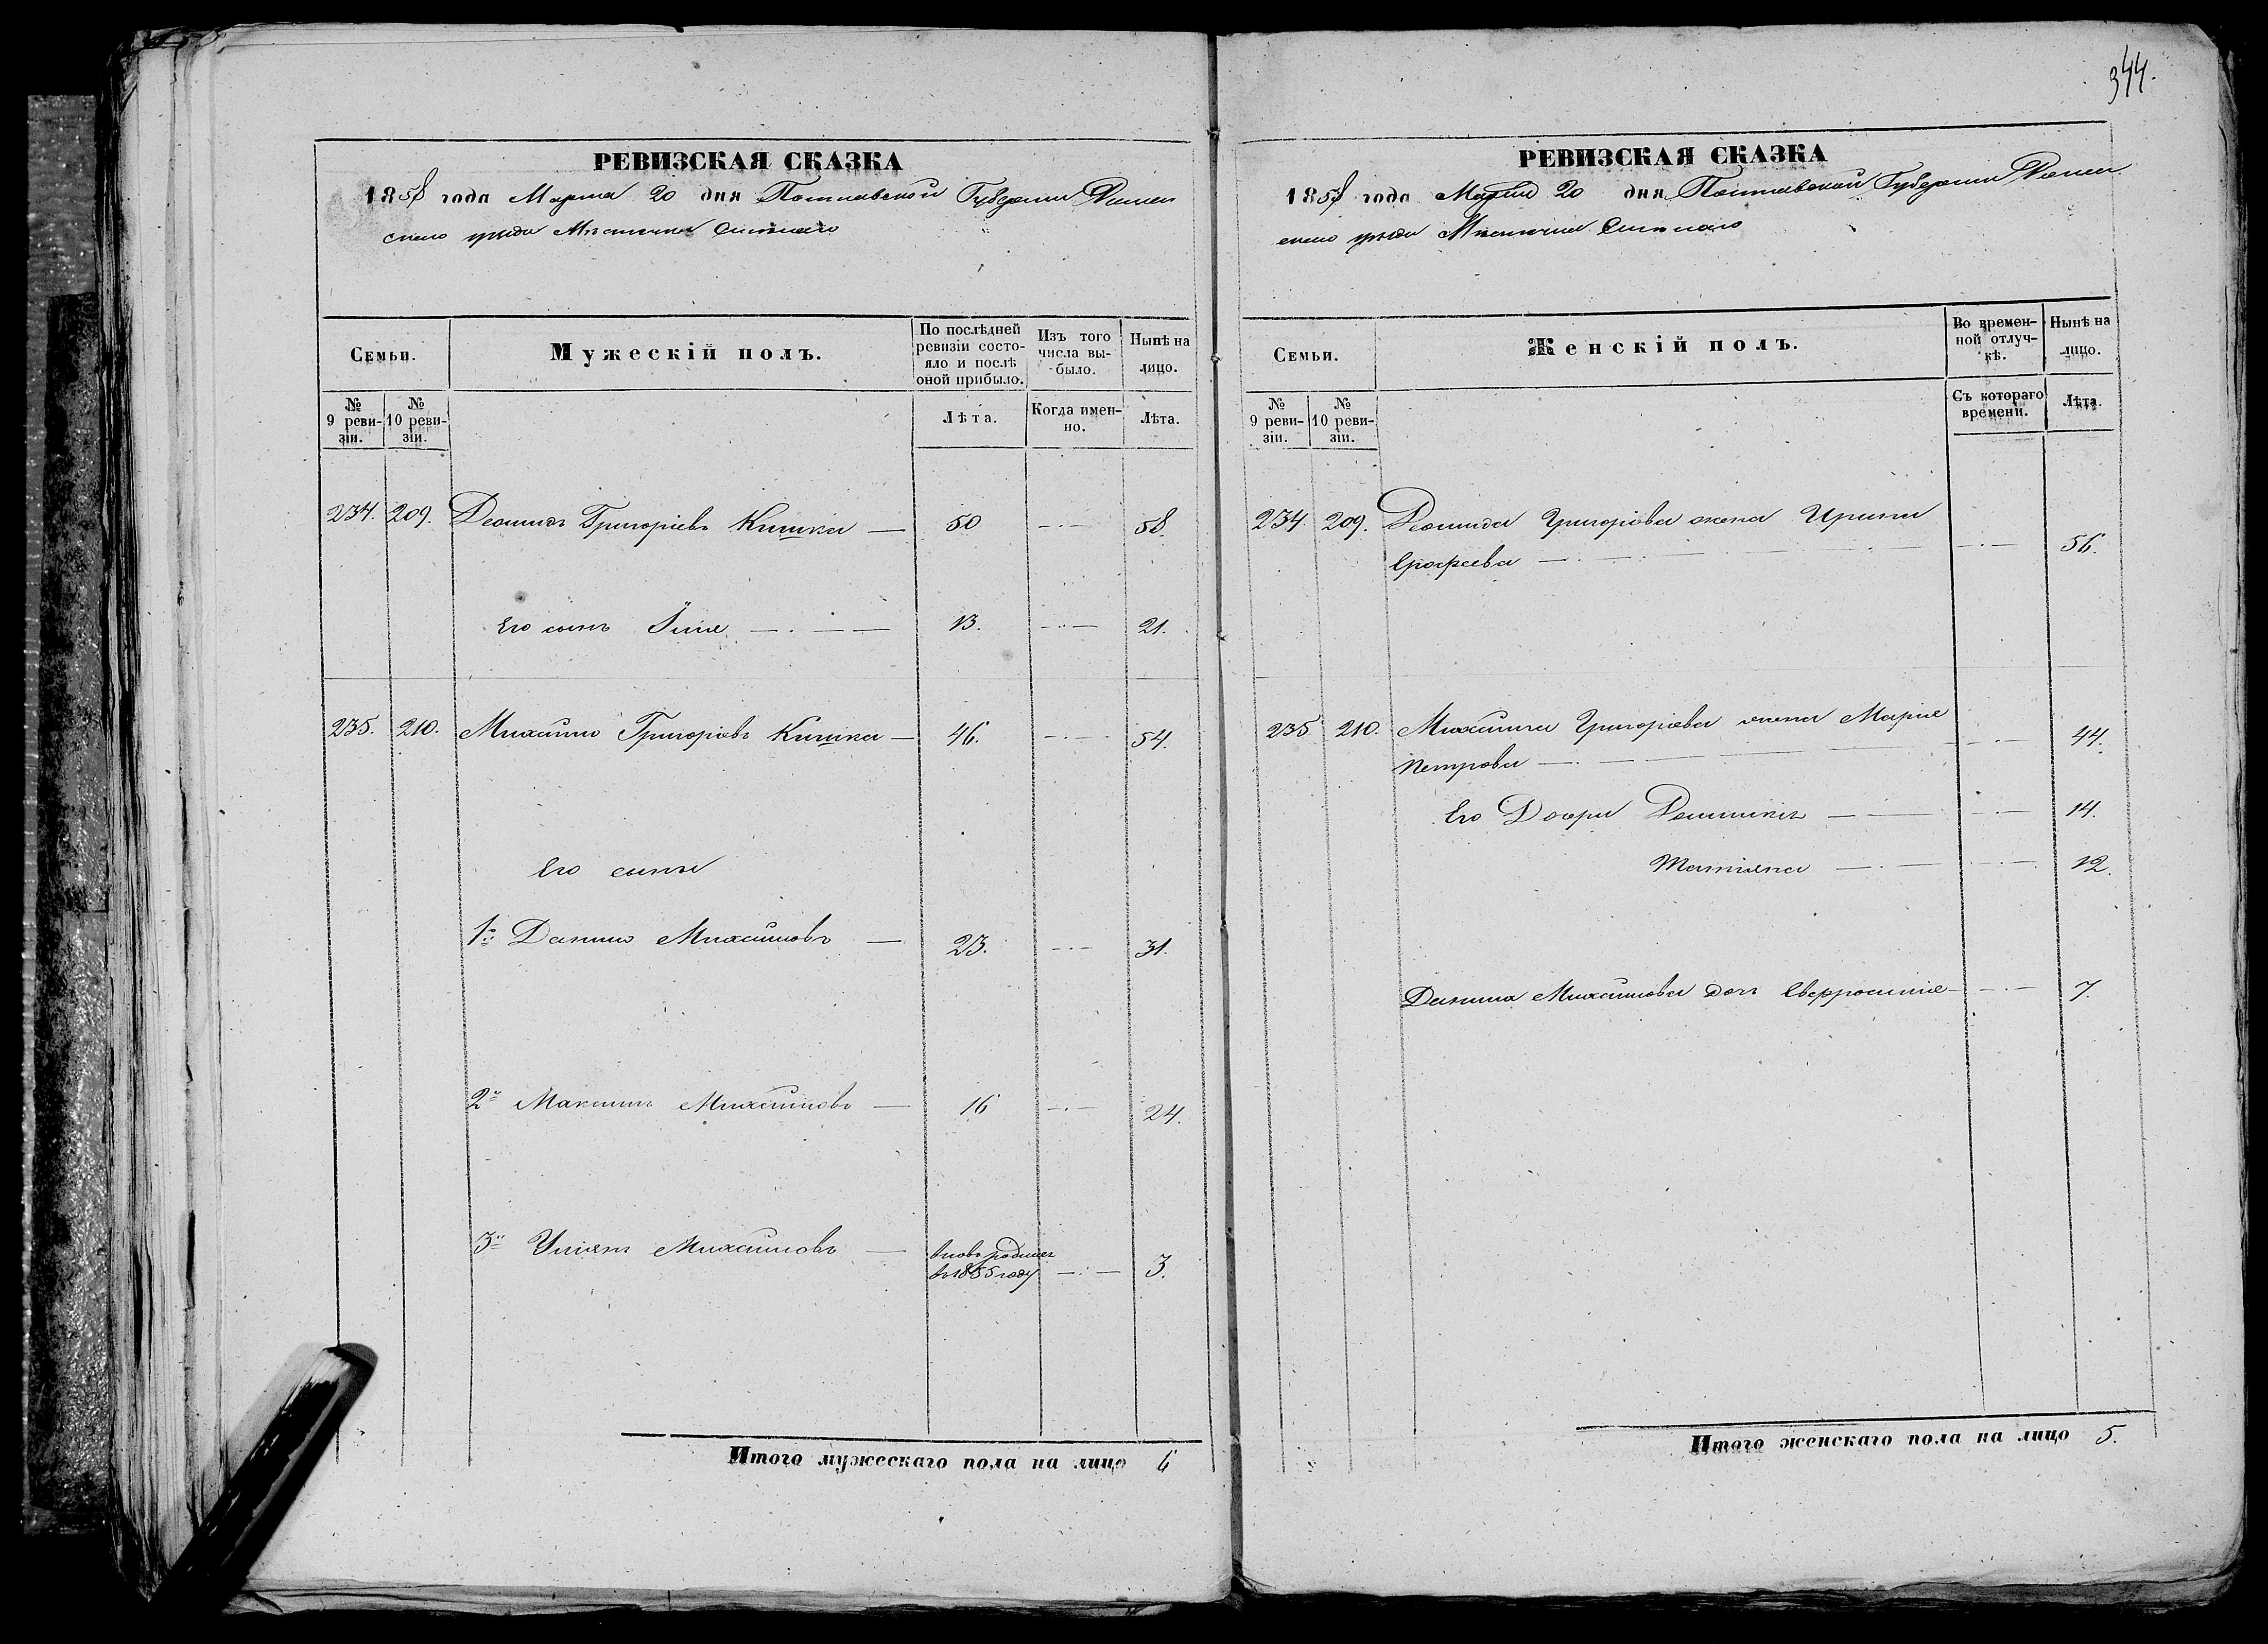 344.
РЕВИЗСКАЯ СКАЗКА
1858 года Марта 20 дня Полтавской Губернии Ромен
скаго уѣзда Мѣстечка Смѣлаго
Семьи.
Мужескій полъ.
По послѣдней ревизіи состояло и послѣ оной прибыло.
Изъ того числа выбыло.
Нынѣ на лицо.
№ 9 ревизіи.
№ 10 ревизіи.
Лѣта.
Когда именно.
Лѣта.
234. 209. Леонтій Григоріевъ Кишка — 50 —·— 58.
Его сынъ Илія —·— — 13. —·— 21.
235. 210. Михаилъ Григоріевъ Кишка — 46. —·— 54.
Его сыны
1й Данило Михаиловъ — 23. —·— 31.
2й Максимъ Михаиловъ — 16 —·— 24.
3й Уліянъ Михаиловъ — вновь родился
въ 1855 году —·— 3.
Итого мужескаго пола на лицо 6
РЕВИЗСКАЯ СКАЗКА
1858 года Марта 20 дня Полтавской Губерніи Ромен
скаго уѣзда Мѣстечка Смѣлаго
Семьи.
Женскій полъ.
Во временной отлучкѣ.
Нынѣ на лицо.
№ 9 ревизіи.
№ 10 ревизіи.
Съ котораго времени.
Лѣта.
234. 209. Григоріева жена Ирина
Ерофеева — —·— 56.
235 210. Михаила Григоріева жена Марія
Петрова — —·— 44.
Его Дочери — —·— 14.
Татіяна —·— —·— 12.
Данила Михаилова дочь Евфросинія —·— 7.
Итого женскаго пола на лицо 5.